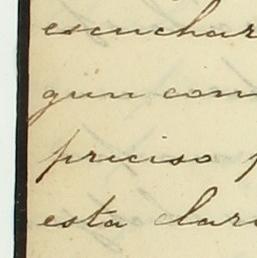 escuchar
gun con
preciso p
esta clar